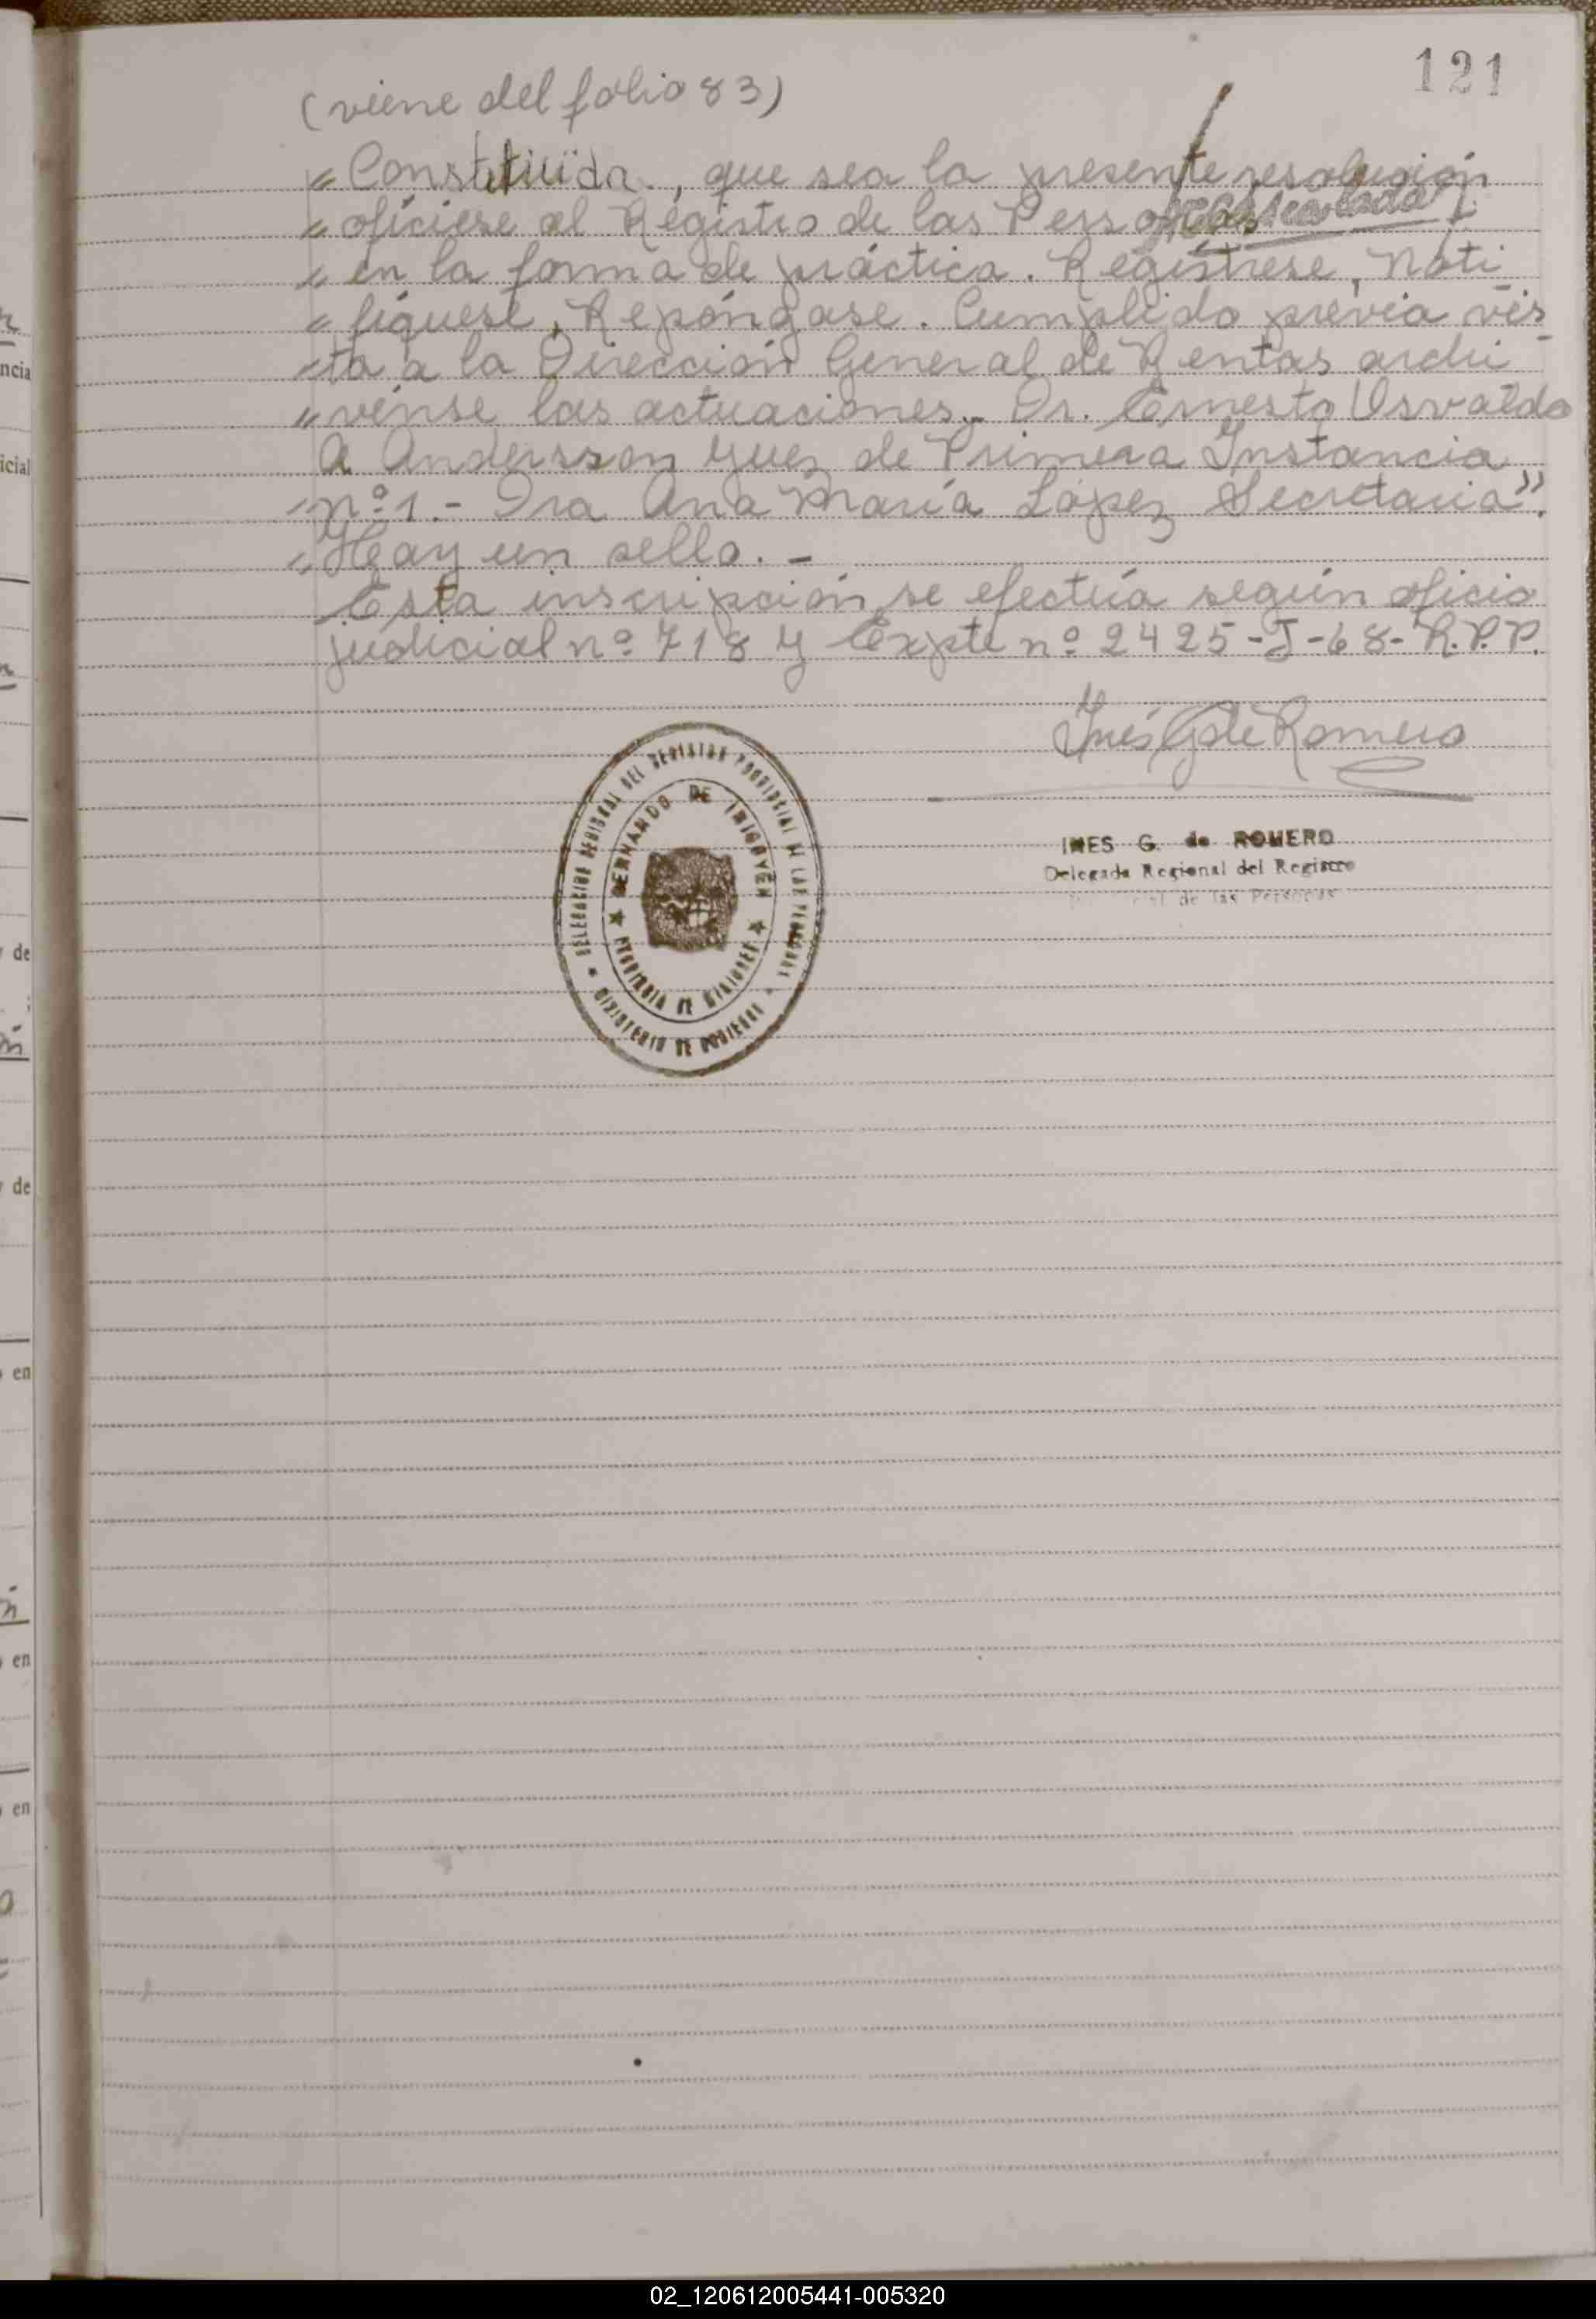 121
(viene del folio 83)
" Constituída, que sea la presente resolución
" ofíciese al Registro de las Personas
" en la forma de práctica. Regístrese, Noti
" fíquese, Repóngase. Cumplido previa vis
" ta a la Dirección General de Rentas archi
" vense las actuaciones.- Dr. Ernesto Osvaldo
A Andersson Juez de Primera Instancia
" nº 1.- Dra Ana María López Secretaria".
" Hay un sello.-
Esta inscripción se efectúa según oficio
judicial nº 718 y Expte nº 2425-J-68-R.P.P.
Inés G de Romero
INES G. de ROMERO
Delegada Regional del Registro
de las Personas
DELEGACION REGIONAL DEL REGISTRO PROVINCIAL DE LAS PERSONAS
BERNARDO DE IRIGOYEN
PROVINCIA DE MISIONES
MINISTERIO DE GOBIERNO
ncia
icial
de
de
en
en
en
02_120612005441-005320